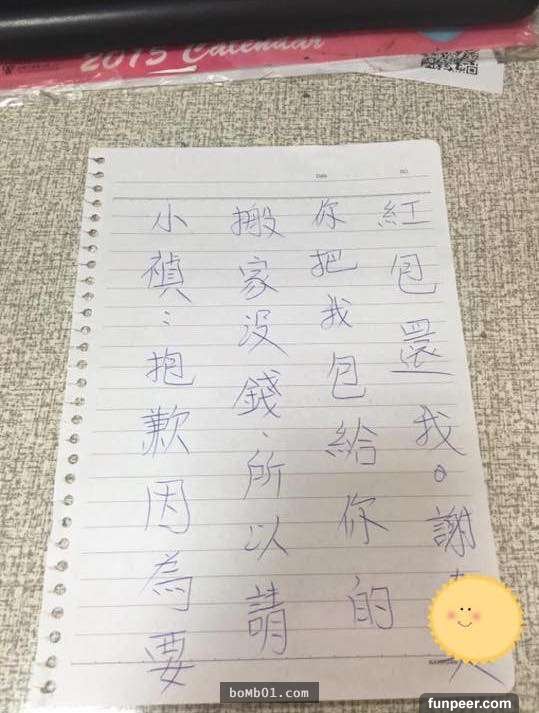 2015 Calendar
Date
NO.
小禎：抱歉因為要
搬家没錢、所以請
你把我包給你的
紅包還我。謝
boMb01.com
funpeer.com